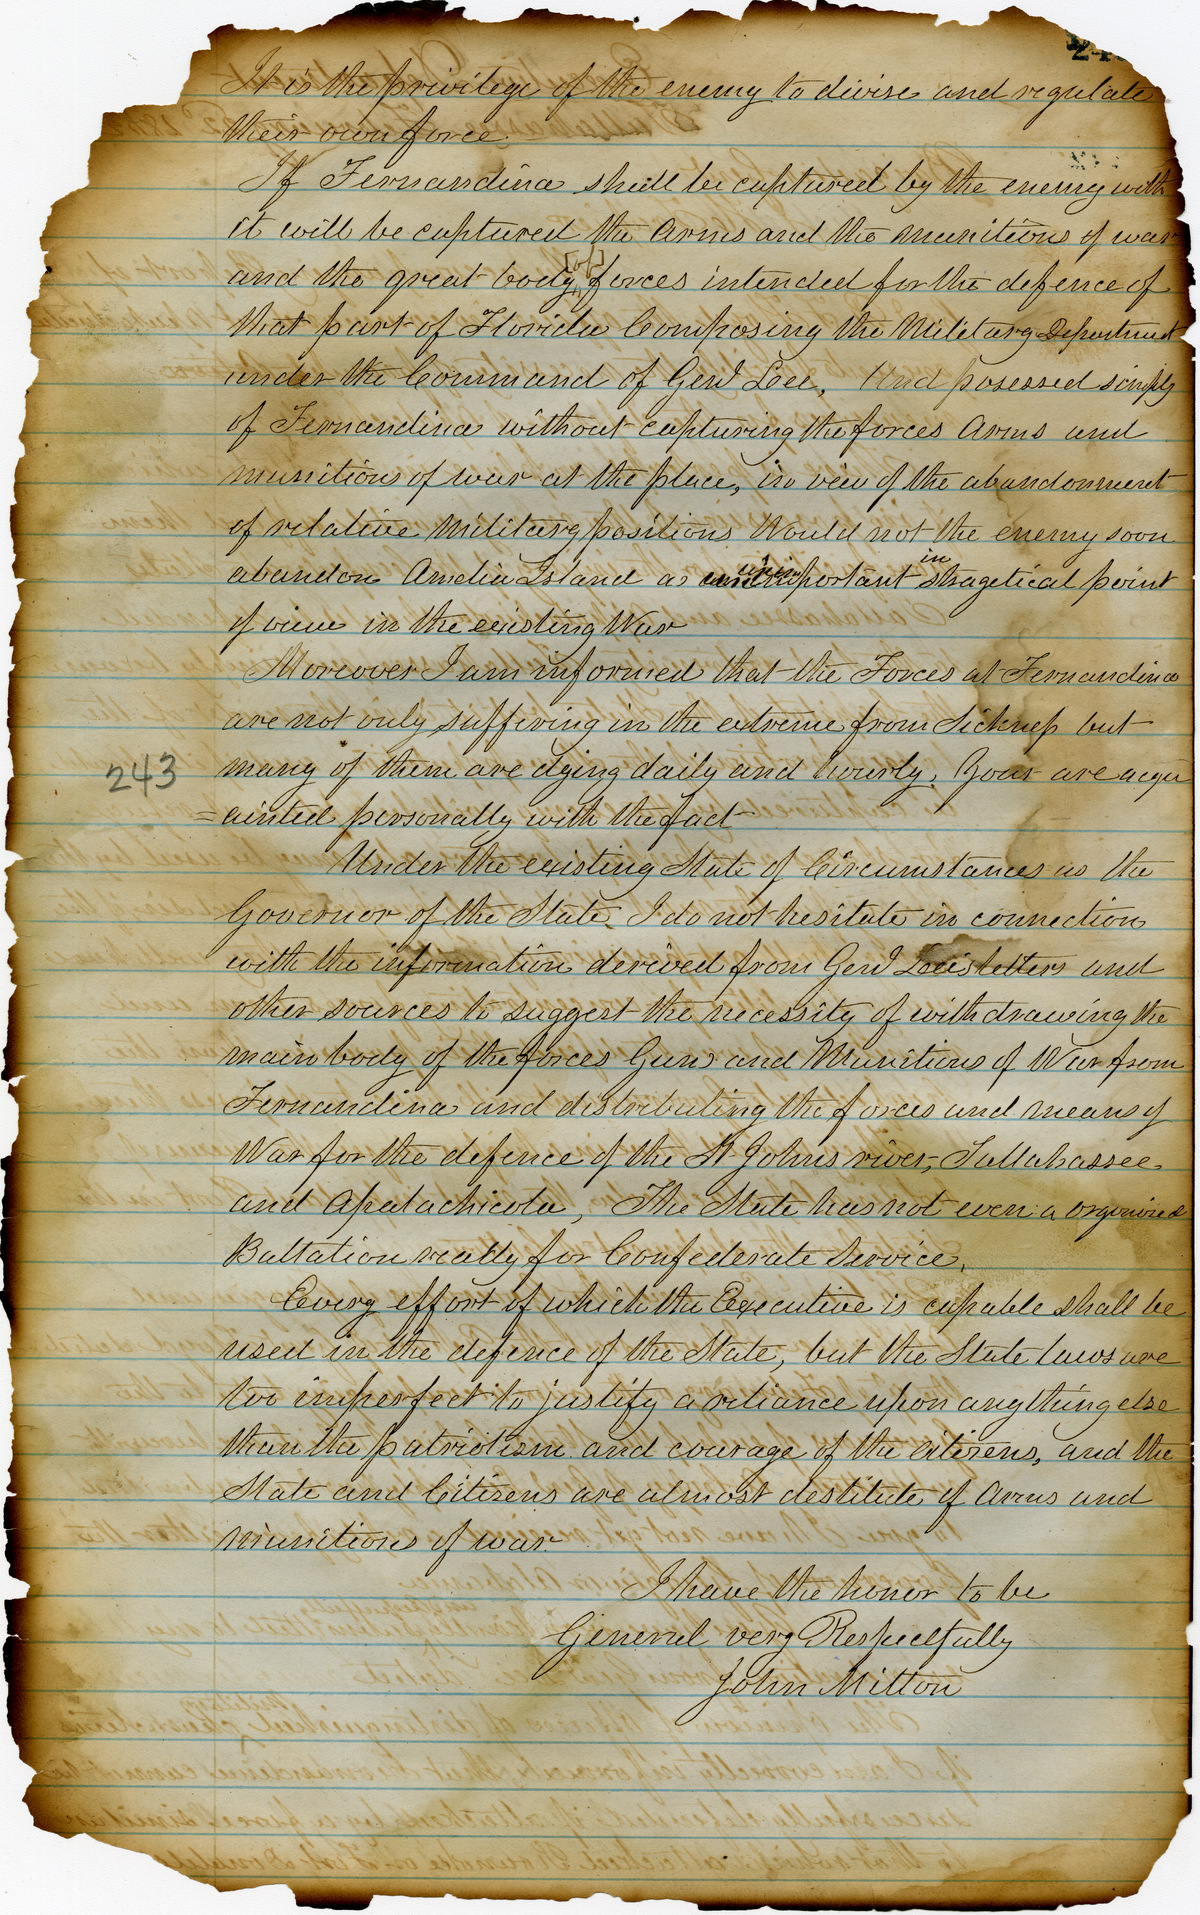 It is the privilege of the enemy to divise and regulate
their own force.
If Fernandina shall be captured by the enemy with
it will be captured the Arms and the munitions of war
and the great body [of] forces intended for the defence of
that part of Florida Composing the Military Department
under the Command of Genl Lee, And posessed simply
of Fernandina without capturing the forces Arms and
munitions of war at the place, in view of the abandonment
of relative Military positions Would not the enemy soon
abandon Amelia Island as unimportant in stragetical point
of view in the existing War
Moreover I am informed that the Forces at Fernandina
are not only suffiring in the extreme from Sickness but
243
many of them are dying daily and hourly. Your are acqu
=ainted personally with the fact
Under the existing State of Circumstances as the
Governor of the State, I do not hesitate in connection
with the information derived from Genl Lee's letters and
other sources to suggest the necessity of withdrawing the
main body of the forces Guns and Munitions of War from
Fernandina and distributing the forces and means of
War for the defence of the St Johns river, Tallahassee
and Apalachicola, The State has not even a organized
Battation ready for Confederate Service.
Every effort of which the Executive is capable shall be
used in the defence of the State, but the State laws are
too imperfect to justify a reliance upon anything else
than the patriotism and courage of the citizens, and the
State and Citizens are almost destitute of Arms and
munitions of war
I have the honor to be
General very Respectfully
John Milton